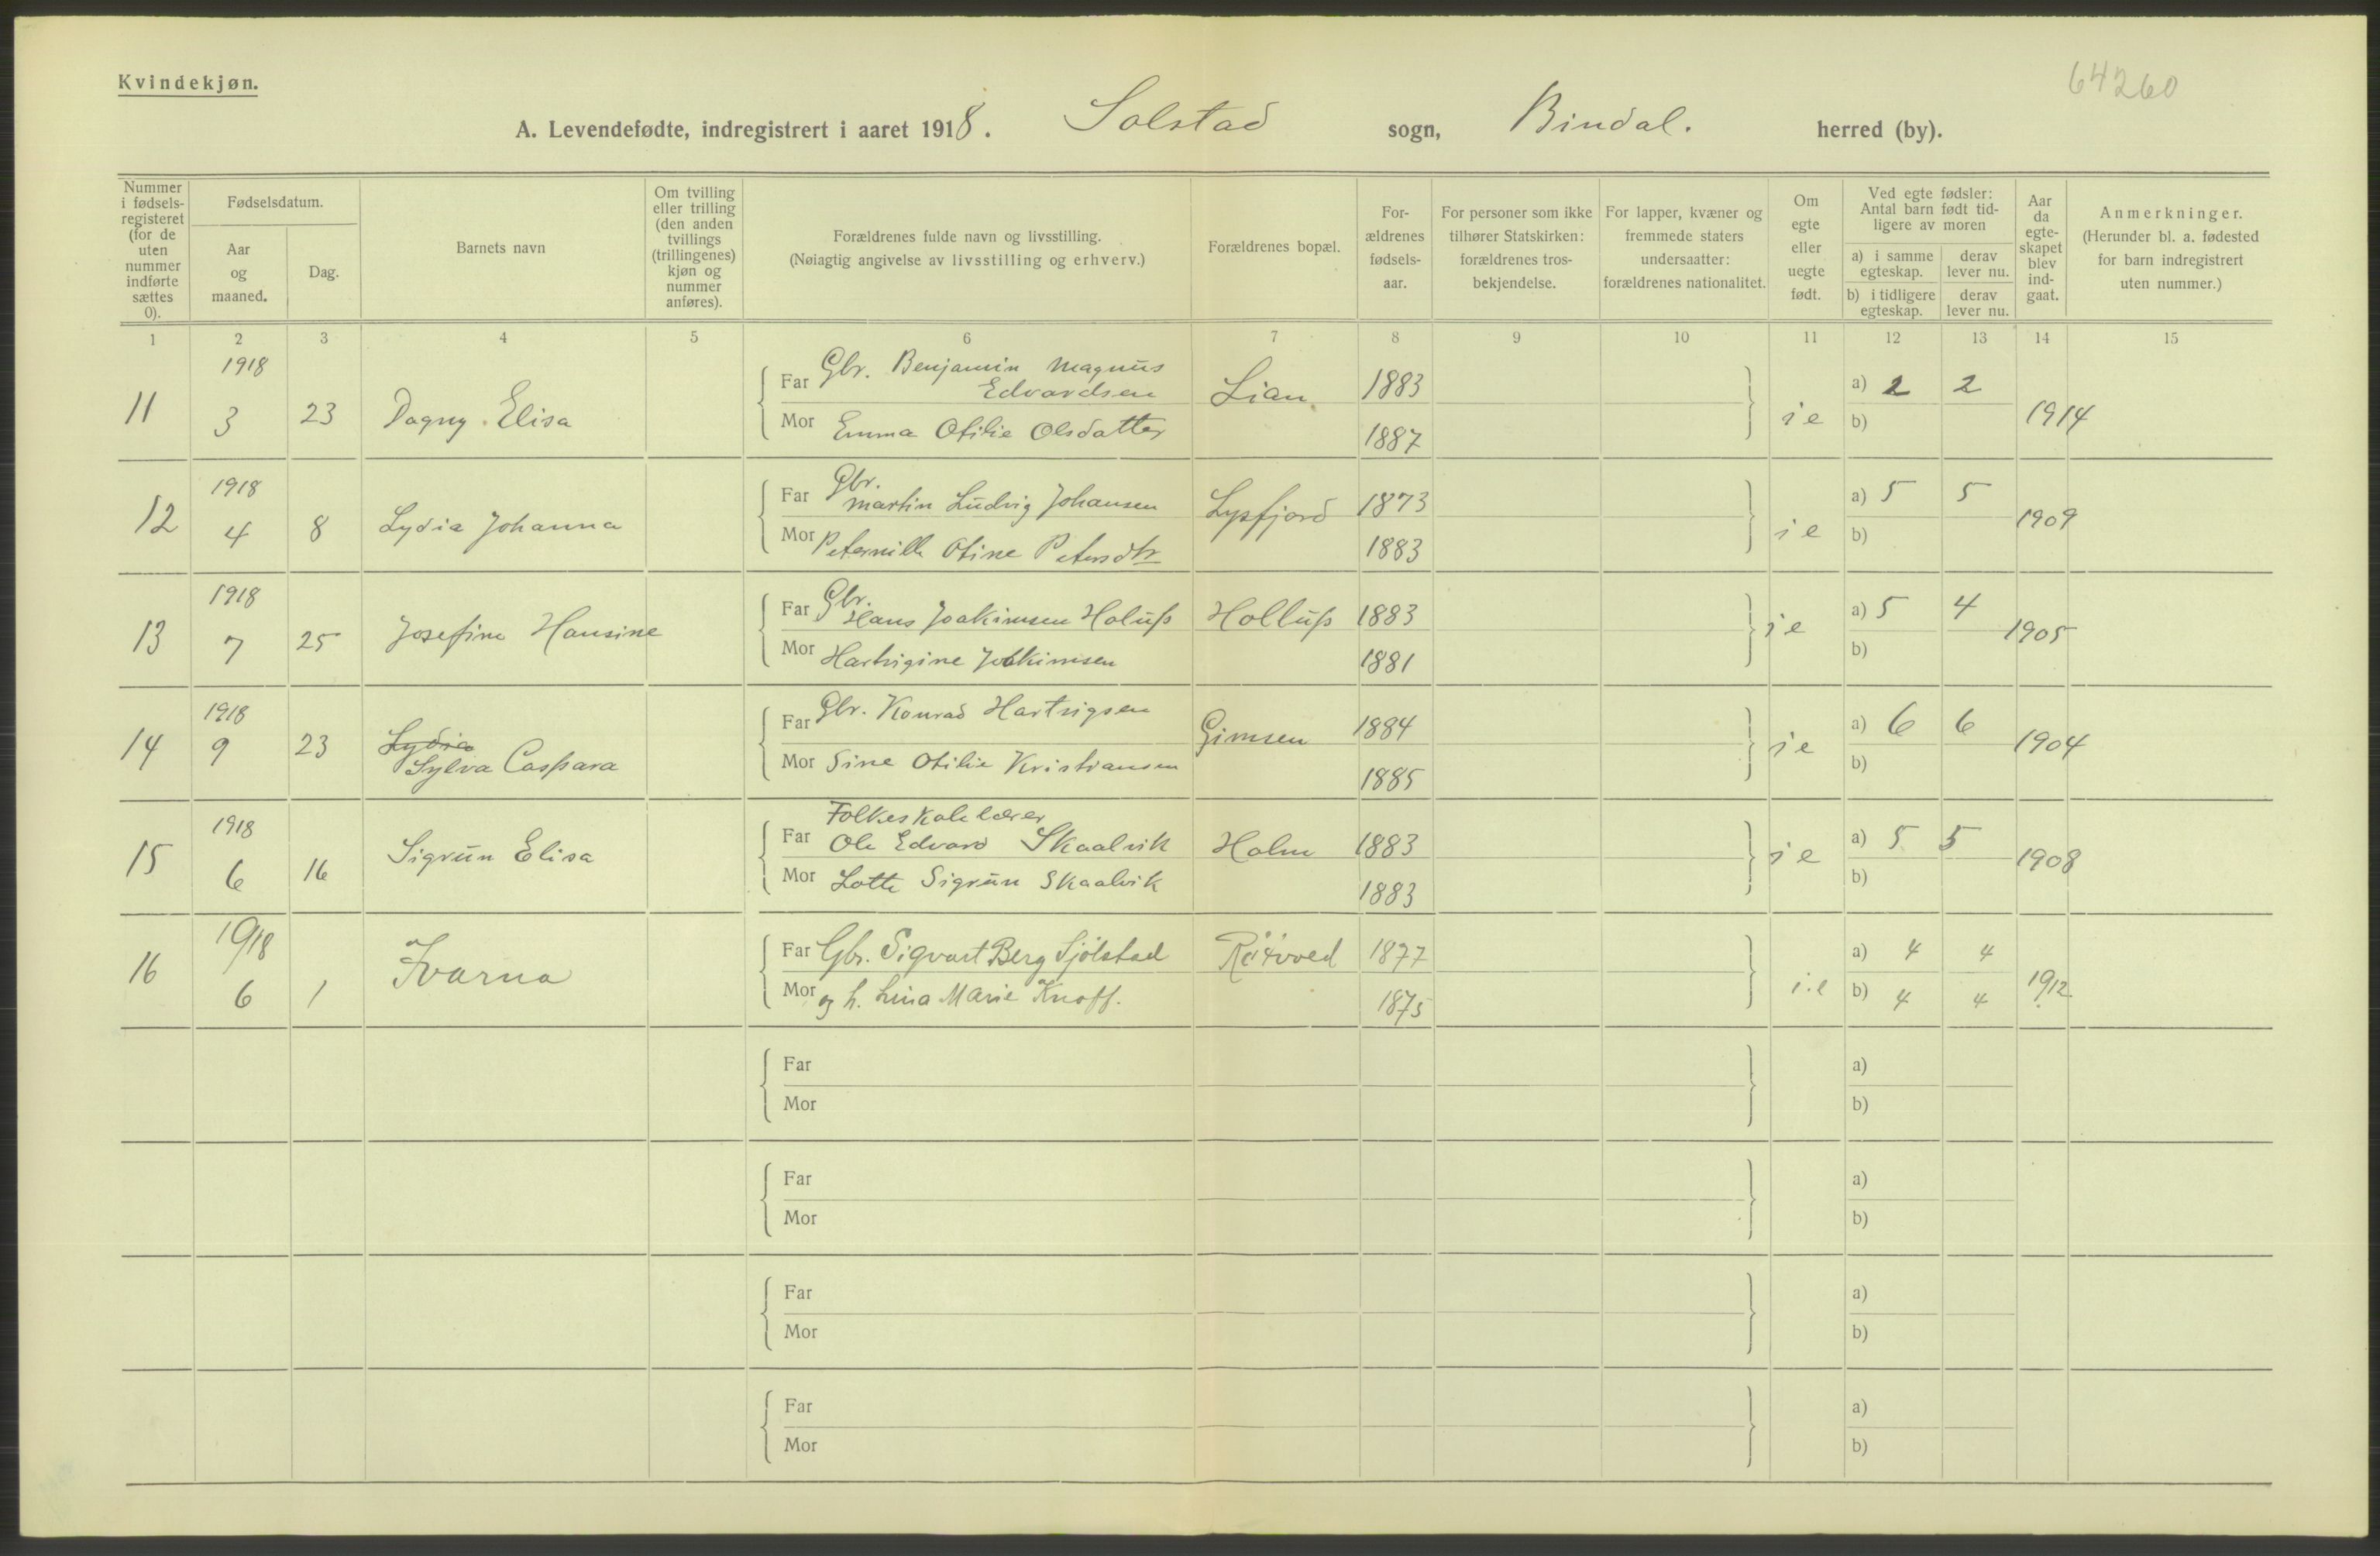 Kvindekjøn.
64260
A. Levendefødte, indregistrert i aaret 1918. Solstad sogn, Bindal. herred (by).
Nummer i fødsels-registeret (for de uten nummer indførte sættes 0).
Fødselsdatum.
Aar og maaned.
Dag.
Barnets navn
Om tvilling eller trilling (den anden tvillings (trillingenes) kjøn og nummer anføres).
Forældrenes fulde navn og livsstilling.
(Nøiagtig angivelse av livsstilling og erhverv.)
Forældrenes bopæl.
For-ældrenes fødsels-aar.
For personer som ikke tilhører Statskirken: forældrenes tros-bekjendelse.
For lapper, kvæner og fremmede staters undersaatter: forældrenes nationalitet.
Om egte eller uegte født.
Ved egte fødsler: Antal barn født tid-ligere av moren
a) i samme egteskap.
derav lever nu.
b) i tidligere egteskap.
derav lever nu.
Aar da egte-skapet blev ind-gaat.
Anmerkninger.
(Herunder bl. a. fødested for barn indregistrert uten nummer.)
1 2 3 4 5 6 7 8 9 10 11 12 13 14 15
1918
11 3 23 Dagny Elisa
Far Gbr. Benjamin Magnus
Edvardsen Lian 1883
Mor Emma Otilie Olsdatter 1887
i e a) 2 2
b)
1914
1918
12 4 8 Lydia Johanna
Far Gbr.
Martin Ludvig Johansen Lysfjord 1873
Mor Peternille Otine Petersdtr 1883
i e a) 5 5
b)
1909
1918
13 7 25 Josefine Hansine
Far Gbr.
Hans Joakimsen Holuß Holluß 1883
Mor Hartvigine Joakimsen 1881
i e a) 5 4
b)
1905
1918
14 9 23 Lydia
Sylva Caspara
Far Gbr. Konrad Hartvigsen Gimsen 1884
Mor Sine Otilie Kristiansen 1885
i e a) 6 6
b)
1904
1918
15 6 16 Sigrun Elisa
Folkeskolelærer
Far Ole Edvard Skaalvik Holm 1883
Mor Lotte Sigrun Skaalvik 1883
i e a) 5 5
b)
1908
1918
16 6 1 Ivarna
Far Gbr. Sigvart Berg Sjølstad 1877
Mor og h. Lina Marie Knoff. 1875
i.e a) 4 4
b) 4 4
1912.
Far
Mor
a)
b)
Far
Mor
a)
b)
Far
Mor
a)
b)
Far
Mor
a)
b)